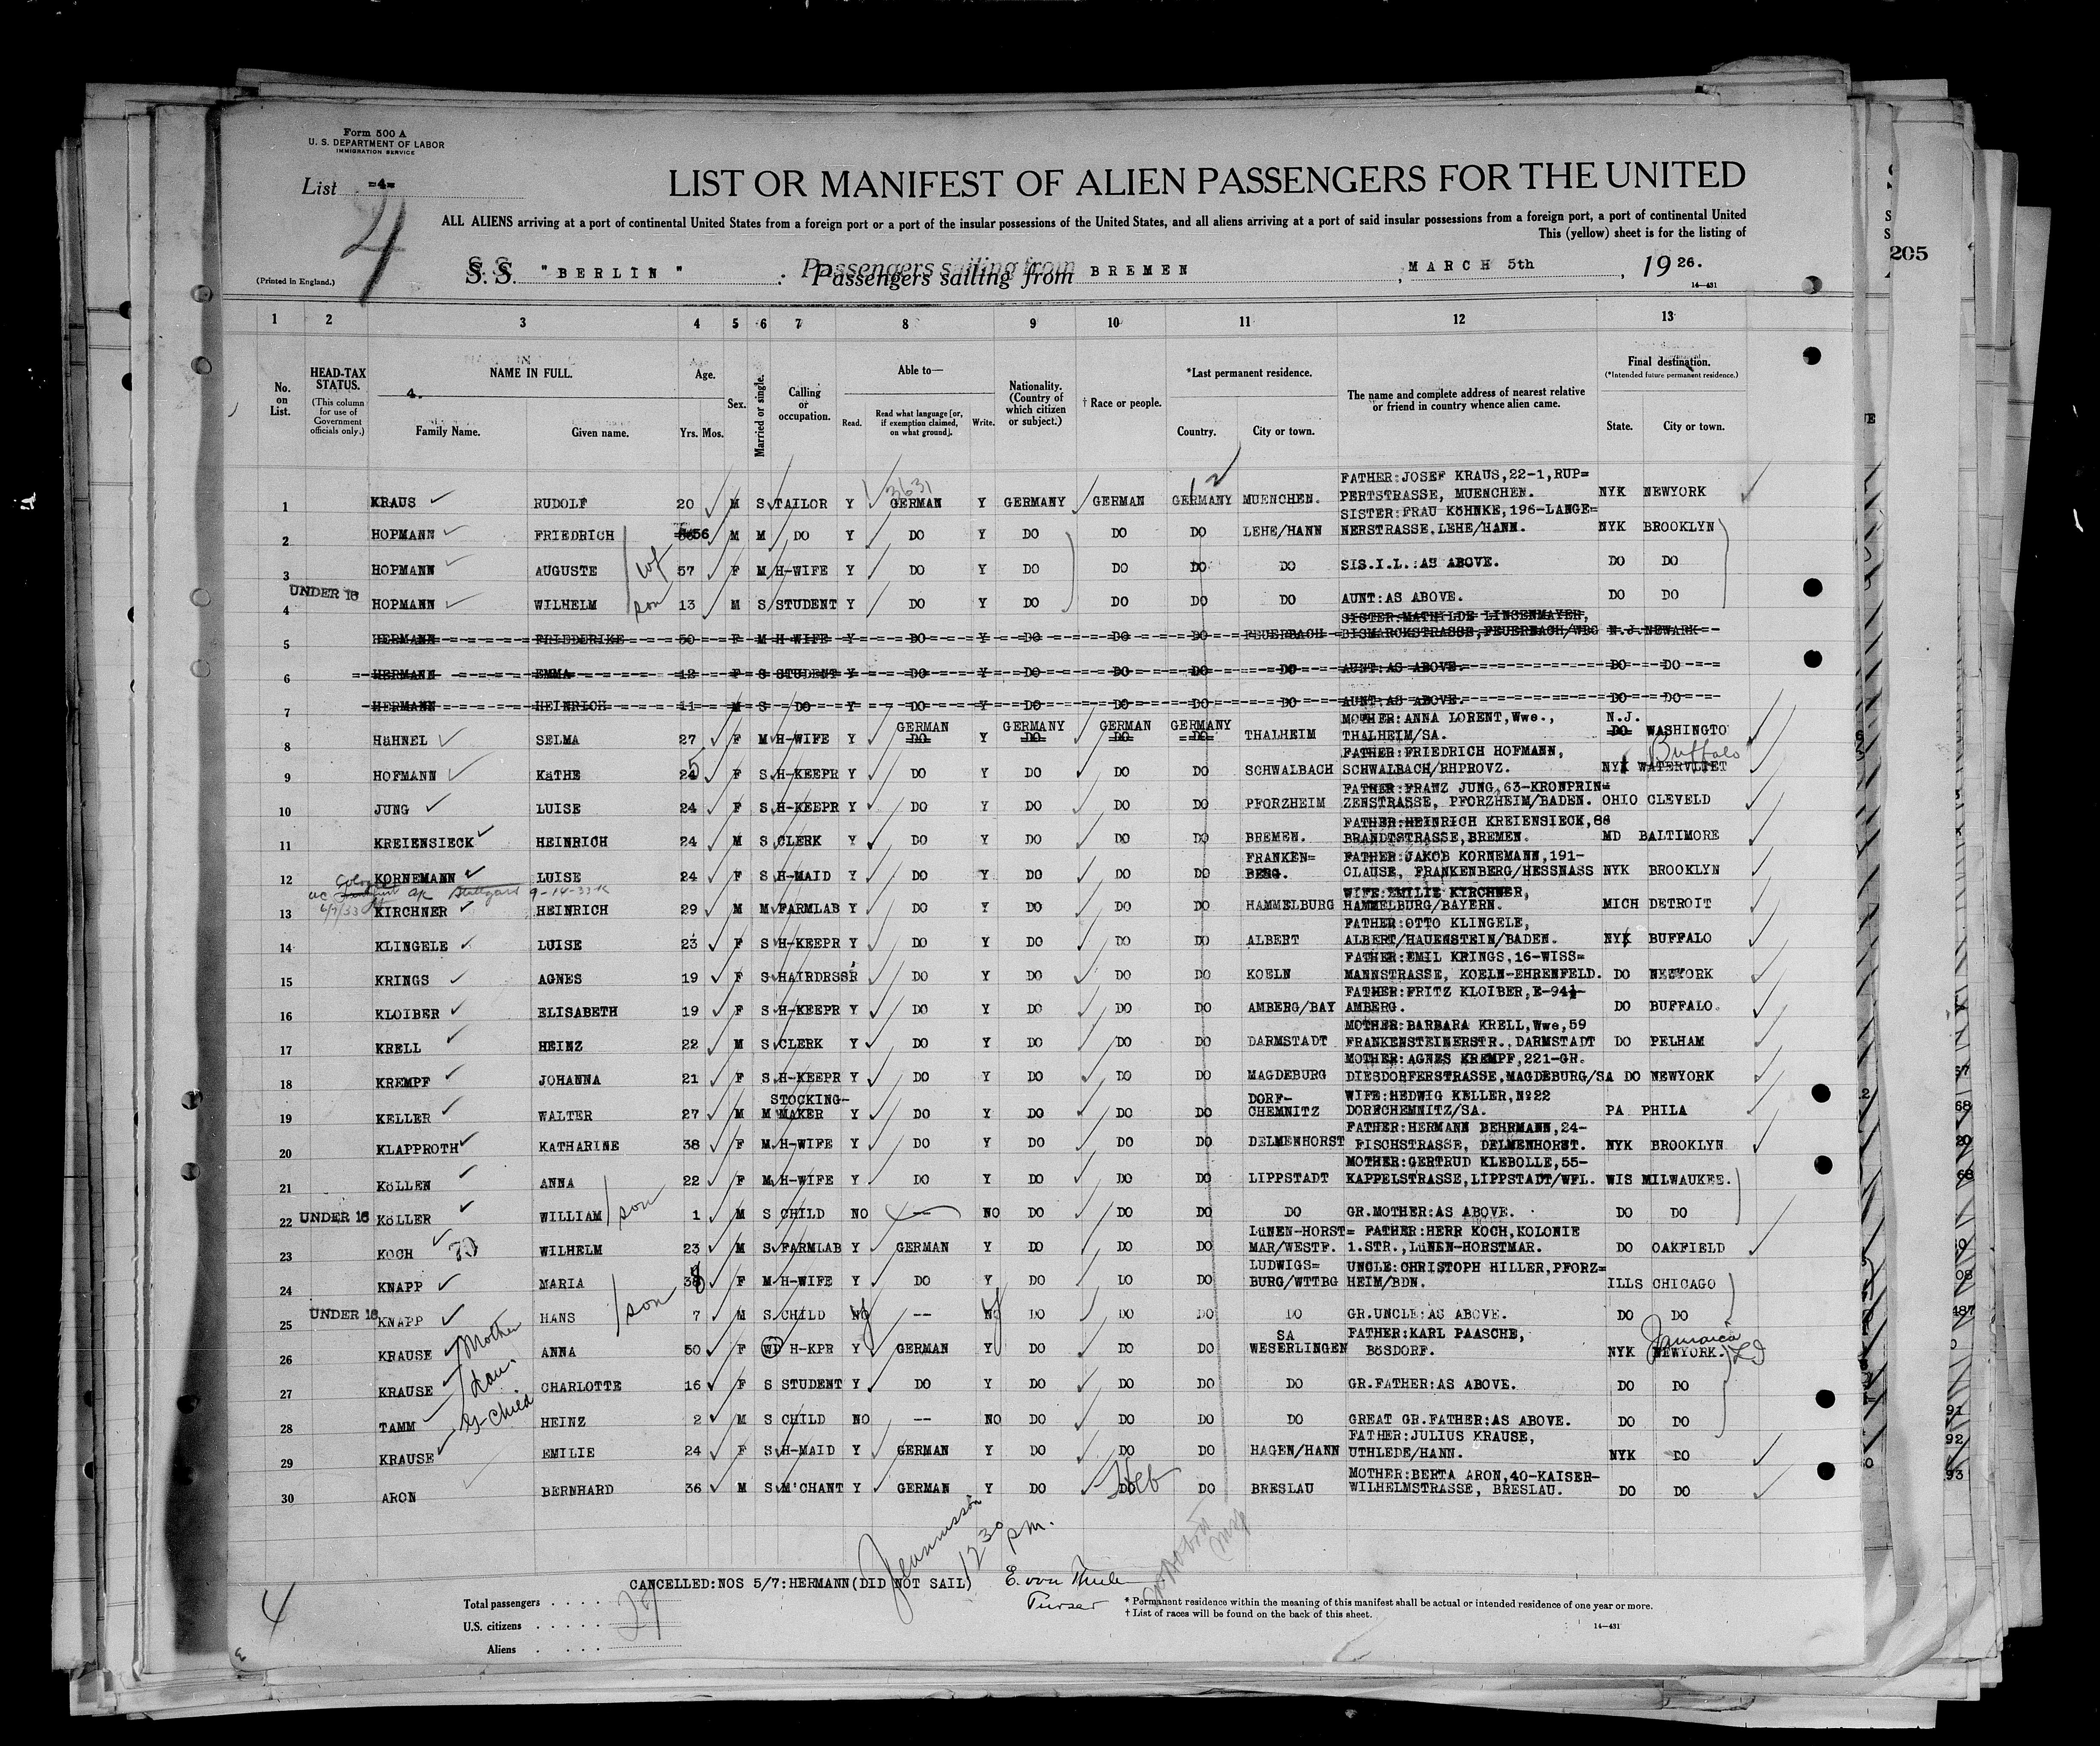 Form 500 A
U. S. DEPARTMENT OF LABOR
IMMIGRATION SERVICE
List =4=
4
LIST OR MANIFEST OF ALIEN PASSENGERS FOR THE UNITED
ALL ALIENS arriving at a port of continental United States from a foreign port or a port of the insular possessions of the United States, and all aliens arriving at a port of said insular possessions from a foreign port, a port of continental United
This (yellow) sheet is for the listing of
(Printed in England.)
S. S. "BERLIN" Passengers sailing from BREMEN, MARCH 5th, 19 26.
14—431
205
1 2 3 4 5 6 7 8 9 10 11 12 13
No. on List.
HEAD-TAX STATUS. (This column for use of Government officials only.)
NAME IN FULL.
4.
Family Name. Given name.
Age. Yrs. Mos.
Sex.
Married or single.
Calling or occupation.
Able to—
Read. Read what language [or, if exemption claimed, on what ground]. Write.
Nationality. (Country of which citizen or subject.)
† Race or people.
*Last permanent residence.
Country. City or town.
The name and complete address of nearest relative or friend in country whence alien came.
Final destination. (*Intended future permanent residence.)
State. City or town.
3631
1 KRAUS RUDOLF 20 M S TAILOR Y GERMAN Y GERMANY GERMAN GERMANY MUENCHEN. FATHER:JOSEF KRAUS,22-1,RUP=PERTSTRASSE, MUENCHEN. NYK NEWYORK
2 HOPMANN FRIEDRICH 56 M M DO Y DO Y DO DO DO LEHE/HANN SISTER:FRAU KÖHNKE,196-LANGE=NERSTRASSE.LEHE/HANN. NYK BROOKLYN
3 HOPMANN AUGUSTE wf 57 F M H-WIFE Y DO Y DO DO DO DO SIS.I.L.:AS ABOVE. DO DO
UNDER 16
4 HOPMANN WILHELM son 13 M S STUDENT Y DO Y DO DO DO DO AUNT:AS ABOVE. DO DO
5 HERMANN FRIEDERIKE 50 F M H-WIFE Y DO Y DO DO DO FEUERBACH SISTER:MATHILDE LINSENMAYER, BISMARCKSTRASSE,FEUERBACH/WBG N.J.NEWARK
6 HERMANN EMMA 12 F S STUDENT Y DO Y DO DO DO DO AUNT:AS ABOVE. DO DO
7 HERMANN HEINRICH 11 M S DO Y DO Y DO DO DO DO AUNT:AS ABOVE. DO DO
8 HäHNEL SELMA 27 F M H-WIFE Y GERMAN DO Y GERMANY DO GERMAN DO GERMANY DO THALHEIM MOTHER:ANNA LORENT,Wwe., THALHEIM/SA. N.J. DO WASHINGTO
9 HOFMANN KäTHE 24 5 F S H-KEEPR Y DO Y DO DO DO SCHWALBACH FATHER:FRIEDRICH HOFMANN, SCHWALBACH/RHPROVZ. NYK WATERVLIET Buffalo
10 JUNG LUISE 24 F S H-KEEPR Y DO Y DO DO DO PFORZHEIM FATHER:FRANZ JUNG,63-KRONPRIN=ZENSTRASSE, PFORZHEIM/BADEN. OHIO CLEVELD
11 KREIENSIECK HEINRICH 24 M S CLERK Y DO Y DO DO DO BREMEN. FATHER:HEINRICH KREIENSIECK,86 BRANDTSTRASSE,BREMEN. MD BALTIMORE
12 KORNEMANN LUISE 24 F S H-MAID Y DO Y DO DO DO FRANKEN=BERG. FATHER:JAKOB KORNEMANN,191-CLAUSE, FRANKENBERG/HESSNASS NYK BROOKLYN
Cologne
Stuttgart 9-14-33
13 KIRCHNER HEINRICH 29 M M FARMLAB Y DO Y DO DO DO HAMMELBURG WIFE:EMILIE KIRCHNER, HAMMELBURG/BAYERN. MICH DETROIT
14 KLINGELE LUISE 23 F S H-KEEPR Y DO Y DO DO DO ALBERT FATHER:OTTO KLINGELE, ALBERT/HAUENSTEIN/BADEN. NYK BUFFALO
15 KRINGS AGNES 19 F S HAIRDRSSR Y DO Y DO DO DO KOELN FATHER:EMIL KRINGS,16-WISS=MANNSTRASSE, KOELN-EHRENFELD. DO NEWYORK
16 KLOIBER ELISABETH 19 F S H-KEEPR Y DO Y DO DO DO AMBERG/BAY FATHER:FRITZ KLOIBER,E-94½-AMBERG. DO BUFFALO.
17 KRELL HEINZ 22 M S CLERK Y DO Y DO DO DO DARMSTADT MOTHER:BARBARA KRELL,Wwe,59 FRANKENSTEINERSTR., DARMSTADT DO PELHAM
18 KREMPF JOHANNA 21 F S H-KEEPR Y DO Y DO DO DO MAGDEBURG MOTHER:AGNES KREMPF,221-GR. DIESDORFERSTRASSE,MAGDEBURG/SA DO NEWYORK
19 KELLER WALTER 27 M M STOCKING-MAKER Y DO Y DO DO DO DORF-CHEMNITZ WIFE:HEDWIG KELLER,No22 DORFCHEMNITZ/SA. PA PHILA
20 KLAPPROTH KATHARINE 38 F M H-WIFE Y DO Y DO DO DO DELMENHORST FATHER:HERMANN BEHRMANN,24-FISCHSTRASSE, DELMENHORST. NYK BROOKLYN
21 KöLLEN ANNA 22 F M H-WIFE Y DO Y DO DO DO LIPPSTADT MOTHER:GERTRUD KLEBOLLE,55-KAPPELSTRASSE,LIPPSTADT/WFL. WIS MILWAUKEE.
22 UNDER 16 KöLLER WILLIAM son 1 M S CHILD NO -- NO DO DO DO DO GR.MOTHER:AS ABOVE. DO DO
23 KOCH WILHELM 23 M S FARMLAB Y GERMAN Y DO DO DO LüNEN-HORST=MAR/WESTF. FATHER:HERR KOCH,KOLONIE 1.STR.,LüNEN-HORSTMAR. DO OAKFIELD
24 KNAPP MARIA 38 F M H-WIFE Y DO Y DO DO DO LUDWIGS=BURG/WTTBG UNCLE:CHRISTOPH HILLER,PFORZ=HEIM/BDN. ILLS CHICAGO
UNDER 16
25 KNAPP HANS son 7 M S CHILD NO y -- NO y DO DO DO DO GR.UNCLE:AS ABOVE. DO DO
26 KRAUSE Mother ANNA 50 F WD H-KPR Y GERMAN Y DO DO DO SA WESERLINGEN FATHER:KARL PAASCHE, BöSDORF. NYK NEWYORK. Jamaica LI
27 KRAUSE dau. CHARLOTTE 16 F S STUDENT Y DO Y DO DO DO DO GR.FATHER:AS ABOVE. DO DO
28 TAMM G-Child HEINZ 2 M S CHILD NO -- NO DO DO DO DO GREAT GR.FATHER:AS ABOVE. DO DO
29 KRAUSE EMILIE 24 F S H-MAID Y GERMAN Y DO DO DO HAGEN/HANN FATHER:JULIUS KRAUSE, UTHLEDE/HANN. NYK DO
30 ARON BERNHARD 36 M S M'CHANT Y GERMAN Y DO DO Heb DO BRESLAU MOTHER:BERTA ARON,40-KAISER-WILHELMSTRASSE, BRESLAU. DO DO
12 30 pm.
CANCELLED:NOS 5/7:HERMANN(DID NOT SAIL)
Purser
4
Total passengers 27
U.S. citizens
Aliens
* Permanent residence within the meaning of this manifest shall be actual or intended residence of one year or more.
† List of races will be found on the back of this sheet.
14—431